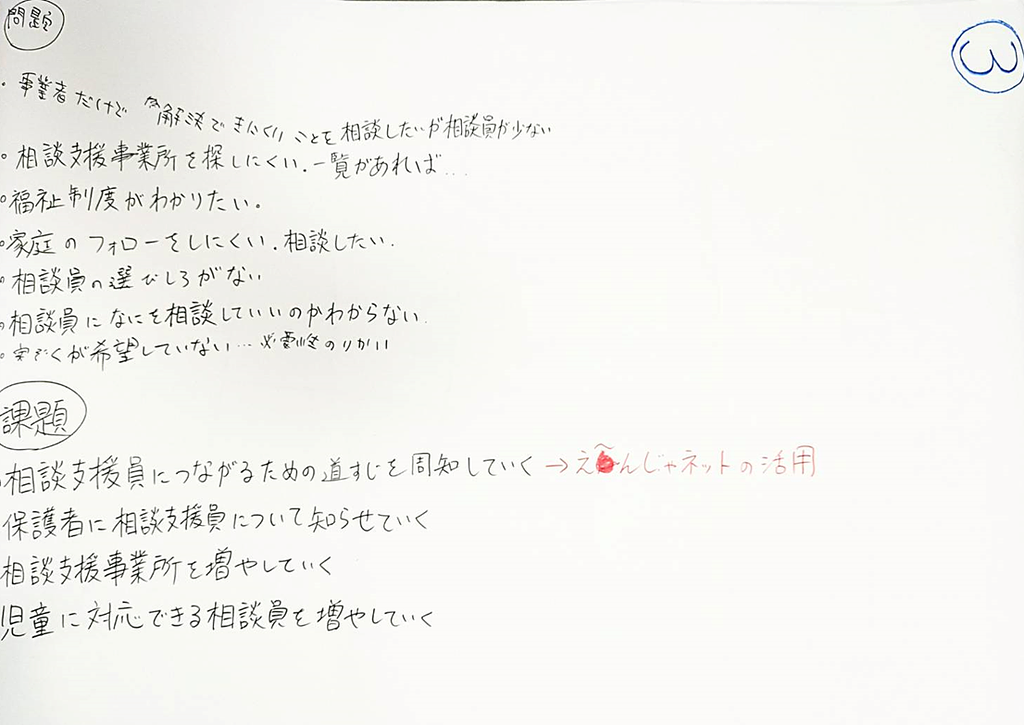 問題
③
・事業者だけで解決できにくいことを相談したいが相談員が少ない
・相談支援事業所を探しにくい.一覧があれば...
・福祉制度がわかりたい。
・家庭のフォローをしにくい.相談したい.
・相談員の選びしろがない
・相談員になにを相談していいのかわからない.
・家ぞくが希望していない…必要性のりかい
課題
・相談支援員につながるための道すじを周知していく→えんじゃネットの活用
保護者に相談支援員について知らせていく
相談支援事業所を増やしていく
児童に対応できる相談員を増やしていく